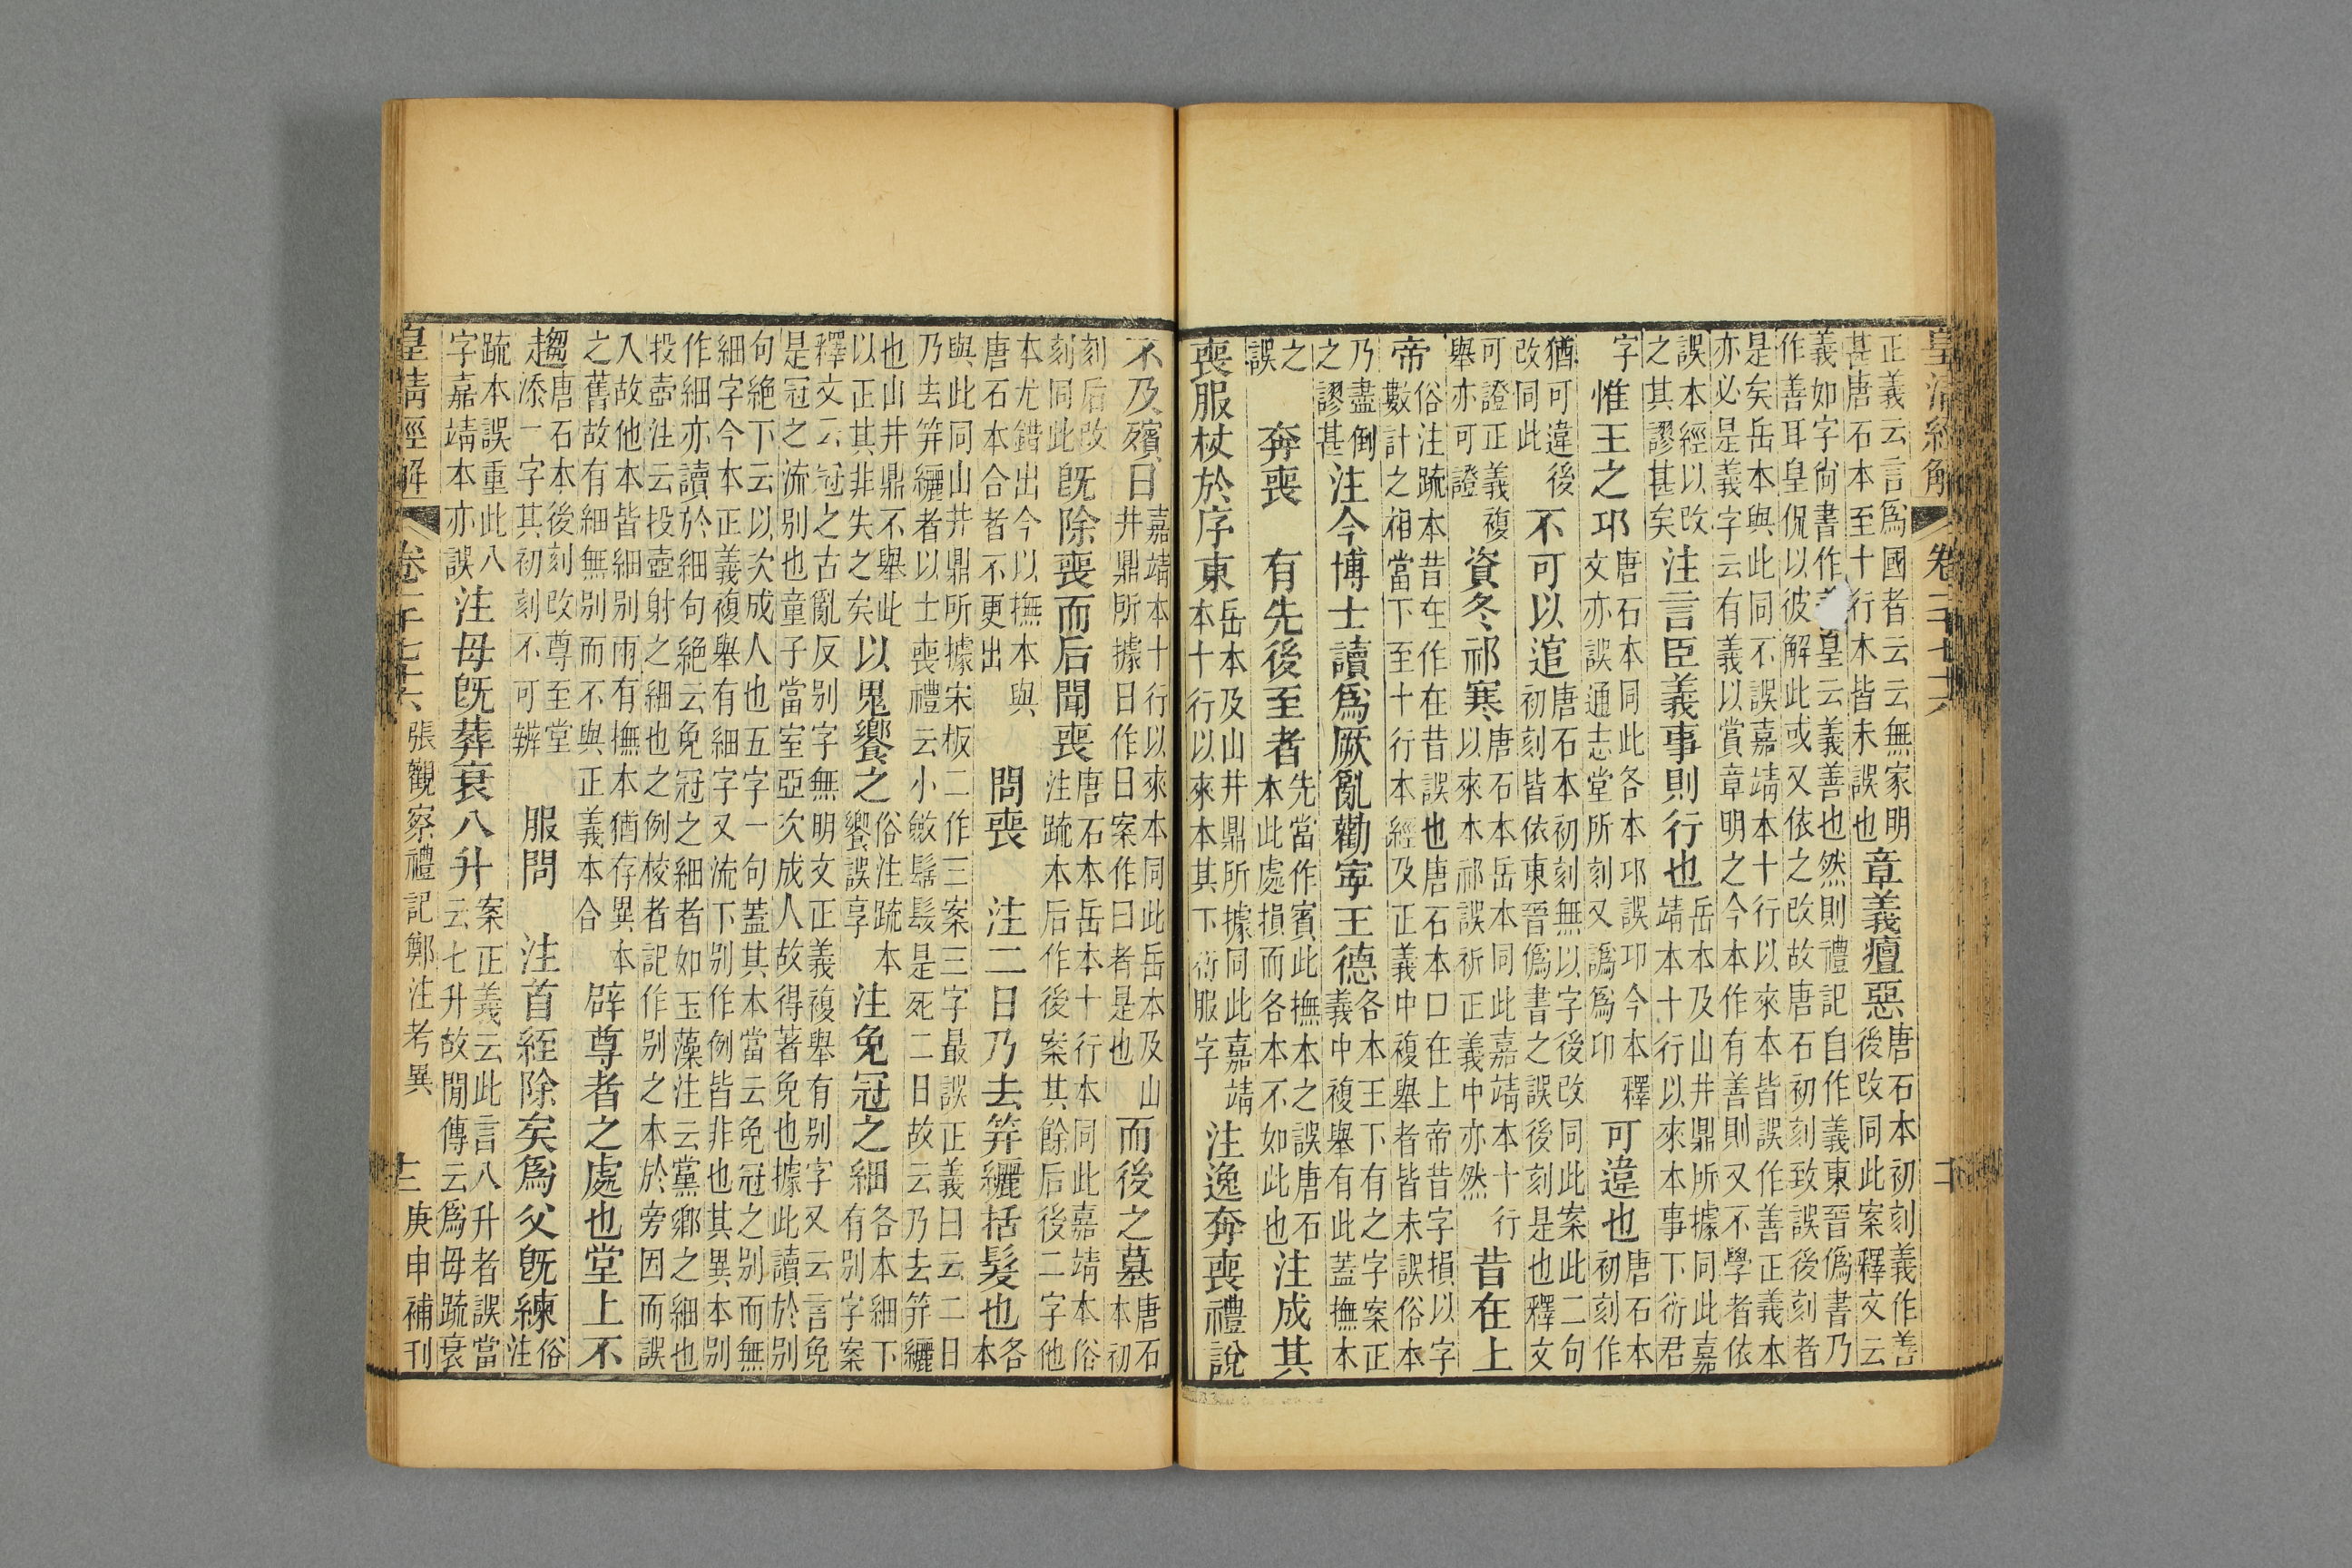 皇清經解 卷一千七十六 二
正義云言爲國者云云無家明
甚唐石本至十行本皆未誤也
章義癉惡
唐石本初刻義作善
後改同此案釋文云
義如字尚書作 皇云義善也然則禮記自作義東晉僞書乃
作善耳皇侃以彼解此或又依之改故唐石初刻致誤後刻者
是矣岳本與此同不誤嘉靖本十行以來本皆誤作善正義本
亦必是義字云有義以賞章明之今本作有善則又不學者依
誤本經以改
之其謬甚矣
注言臣義事則行也
岳本及山井鼎所據同此嘉
靖本十行以來本事下衍君
字
惟王之邛
唐石本同此各本邛誤卭今本釋
文亦誤通志堂所刻又譌爲印
可違也
唐石本
初刻作
猶可違後
改同此
不可以逭
唐石本初刻無以字後改同此案此二句
初刻皆依東晉僞書之誤後刻是也釋文
可證正義複
舉亦可證
資冬祁寒
唐石本岳本同此嘉靖本十行
以來本祁誤祈正義中亦然
昔在上
帝
俗注疏本昔在作在昔誤也唐石本口在上帝昔字損以字
數計之相當下至十行本經及正義中複舉者皆未誤俗本
乃盡倒
之謬甚
注今博士讀爲厥亂勸寧王德
各本王下有之字案正
義中複舉有此蓋撫本
之
誤
奔喪
有先後至者
先當作賓此撫本之誤唐石
本此處損而各本不如此也
注成其
喪服杖於序東
岳本及山井鼎所據同此嘉靖
本十行以來本其下衍服字
注逸奔喪禮說
不及殯日
嘉靖本十行以來本同此岳本及山
井鼎所據日作曰案作曰者是也
而後之墓
唐石
本初
刻后改
刻同此
既除喪而后聞喪
唐石本岳本十行本同此嘉靖本俗
注疏本后作後案其餘后後二字他
本尤錯出今以撫本與
唐石本合者不更出
問喪
注二日乃去笄纚括髮也
各
本
與此同山井鼎所據宋板二作三案三字最誤正義曰云二日
乃去笄纚者以士喪禮云小斂髺髮是死二日故云乃去笄纚
也山井鼎不舉此
以正其非失之矣
以鬼饗之
俗注疏本
饗誤享
注免冠之細
各本細下
有別字案
釋文云冠之古亂反別字無明文正義複舉有別字又云言免
是冠之流別也童子當室亞次成人故得著免也據此讀於別
句絕下云以次成人也五字一句蓋其本當云免冠之別而無
細字今本正義複舉有細字又流下別作例皆非也其異本別
作細亦讀於細句絕云免冠之細者如玉藻注云黨鄉之細也
投壺注云投壺射之細也之例校者記作別之本於旁因而誤
入故他本皆細別兩有撫本猶存異本
之舊故有細無別而不與正義本合
辟尊者之處也堂上不
趨
唐石本後刻改尊至堂
添一字其初刻不可辨
服問
注首絰除矣爲父既練
俗
注
疏本誤重此八
字嘉靖本亦誤
注母既葬衰八升
案正義云此言八升者誤當
云七升故閒傳云爲母疏衰
皇清經解 卷一千七十六 張觀察禮記鄭注考異 庚申補刊